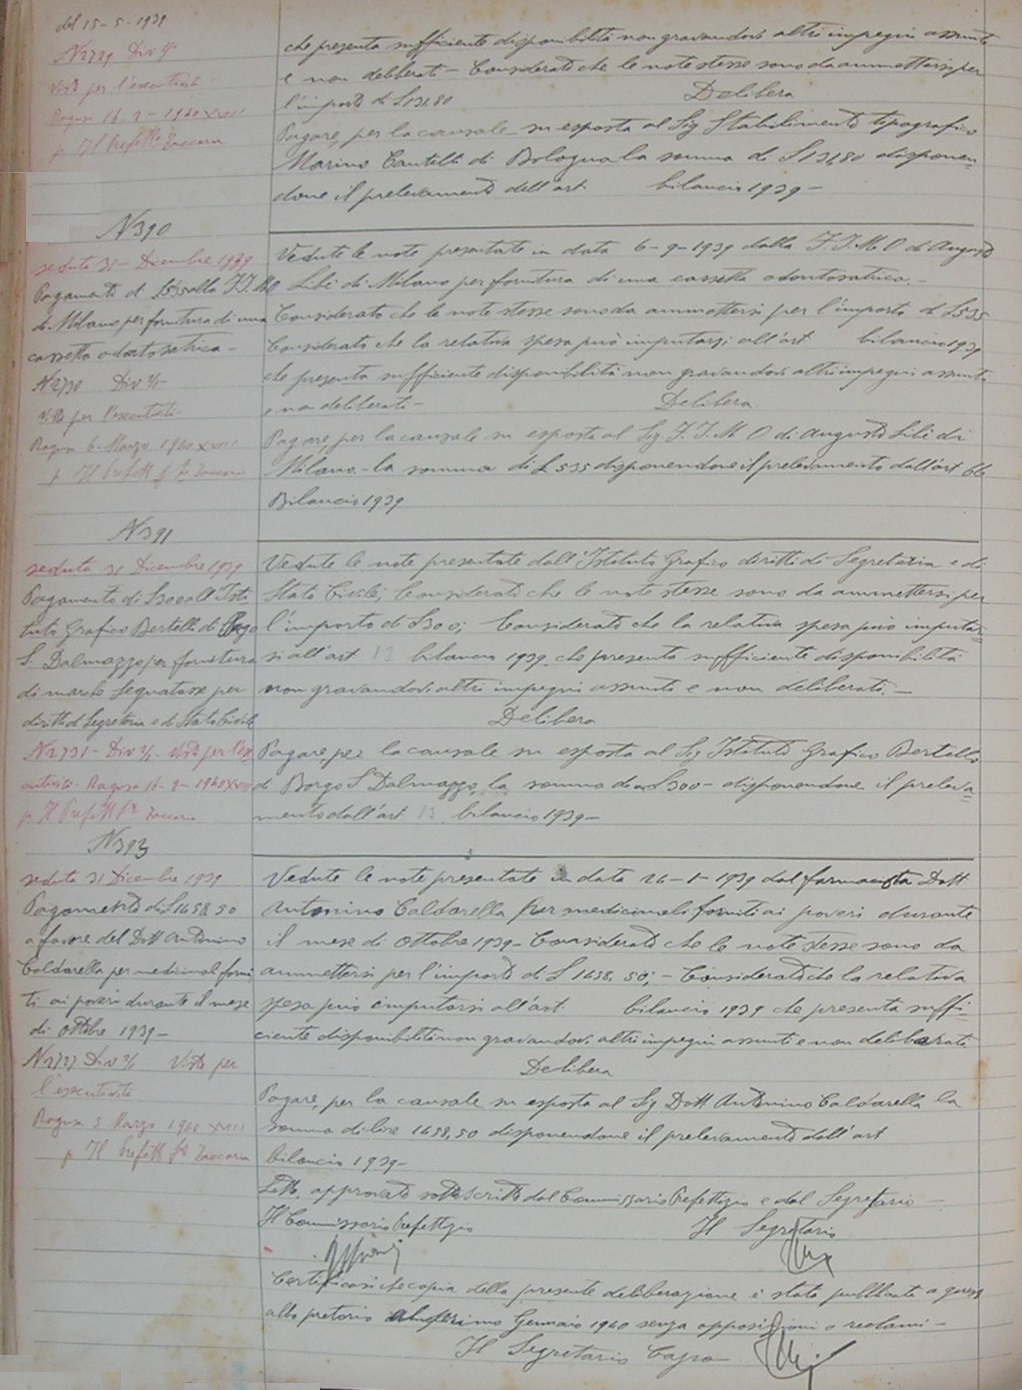 del 15-5-1939
N2729 Div 2/1
Visto per l'esecutività
Ragusa 16-2-1940 XVIII
p Il Prefetto Zaccaria
che presenta sufficiente disponibilità non gravandovi altri impegni assunti
e non deliberati - Considerato che le note stesse sono da ammettersi per
l'importo di £131,80
Delibera
Pagare, per la causale su esposta al Sig Stabilimento tipografico
Marino Cantelli di Bologna la somma di £131,80 disponen=
done il prelevamento dell'art bilancio 1939-
N390
seduta 31- Dicembre 1939
Pagamento di £535 alla F.I.M.O
di Milano per fornitura di una
cassetta odontoiatrica -
N2730 Div 2/1-
Visto per l'esecutività
Ragusa 6-Marzo 1940 XVIII
p Il Prefetto Zaccaria
Vedute le note presentate in data 6-9-1939 dalla F.I.M.O di Augusto
Libè di Milano per fornitura di una cassetta odontoiatrica.-
Considerato che le note stesse sono da ammettersi per l'importo di £535
Considerato che la relativa spesa può imputarsi all'art bilancio 1939
che presenta sufficiente disponibilità non gravandovi altri impegni assunti
e non deliberati -
Delibera
Pagare, per la causale su esposta al Sig F.I.M.O di Augusto Libè di
Milano - la somma di £535 disponendone il prelevamento dall'art 66
Bilancio 1939
N391
seduta 31 Dicembre 1939
Pagamento di £300 all'Isti
tuto Grafico Bertello di Borgo
S. Dalmazzo per fornitura
di marche segnatasse per
diritti di Segreteria e di Stato Civile
N2731- Div 2/1- Visto per l'es
ecutività Ragusa 16-2-1940 XVIII
p Il Prefetto Zaccaria
Vedute le note presentate dall'Istituto Grafico diritti di Segreteria e di
Stato Civile; Considerato che le note stesse sono da ammettersi per
l'importo di £300; Considerato che la relativa spesa può imputar
si all'art 13 bilancio 1939 che presenta sufficiente disponibilità
non gravandovi altri impegni assunti e non deliberati.-
Delibera
Pagare per la causale su esposta al Sig Istituto Grafico Bertello
di Borgo S Dalmazzo, la somma di £300- disponendone il preleva=
mento dall'art 13 bilancio 1939-
N393
seduta 31 Dicembre 1939
Pagamento di £1658,50
a favore del Dott Antonino
Caldarella per medicinali forni
ti ai poveri durante il mese
di ottobre 1939-
N2727 Div 2/1 Visto per
l'esecutività
Ragusa 5 Marzo 1940 XVIII
p Il Prefetto Zaccaria
Vedute le note presentate in data 26-1-1939 dal farmacista Dott
Antonino Caldarella per medicinali forniti ai poveri durante
il mese di ottobre 1939- Considerato che le note stesse sono da
ammettersi per l'importo di £ 1658,50;- Considerato che la relativa
spesa può imputarsi all'art bilancio 1939 che presenta suffi-
ciente disponibilità non gravandovi altri impegni assunti e non deliberati
Delibera
Pagare, per la causale su esposta al Sig Dott Antonino Caldarella la
somma di lire 1658,50 disponendone il prelevamento dall'art
bilancio 1939-
Letto, approvato sottoscritto dal Commissario Prefettizio e dal Segretario -
Il Commissario Prefettizio Il Segretario
Certificasi che copia della presente deliberazione è stata pubblicata a questo
albo pretorio Gennaio 1940 senza opposizioni o reclami -
Il Segretario Capo